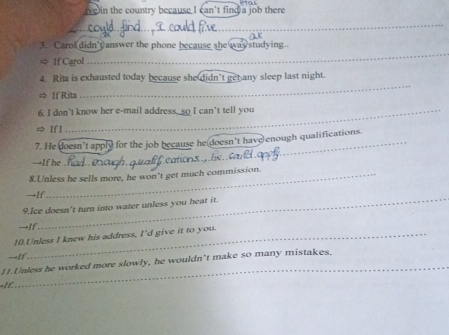 in the country because I can't find a job there
could find , I could live
3. Carol didn't answer the phone because she was studying..
⇨ If Carol
4. Rita is exhausted today because she didn't get any sleep last night.
⇨ If Rita
6. I don't know her e-mail address, so I can't tell you
⇨ If I
7. He doesn't apply for the job because he doesn't have enough qualifications.
→If he had enough qualifications, he could apply
8.Unless he sells more, he won't get much commission.
→If
9.Ice doesn't turn into water unless you heat it.
→If
10.Unless I knew his address, I'd give it to you.
→If
11.Unless he worked more slowly, he wouldn't make so many mistakes.
→If